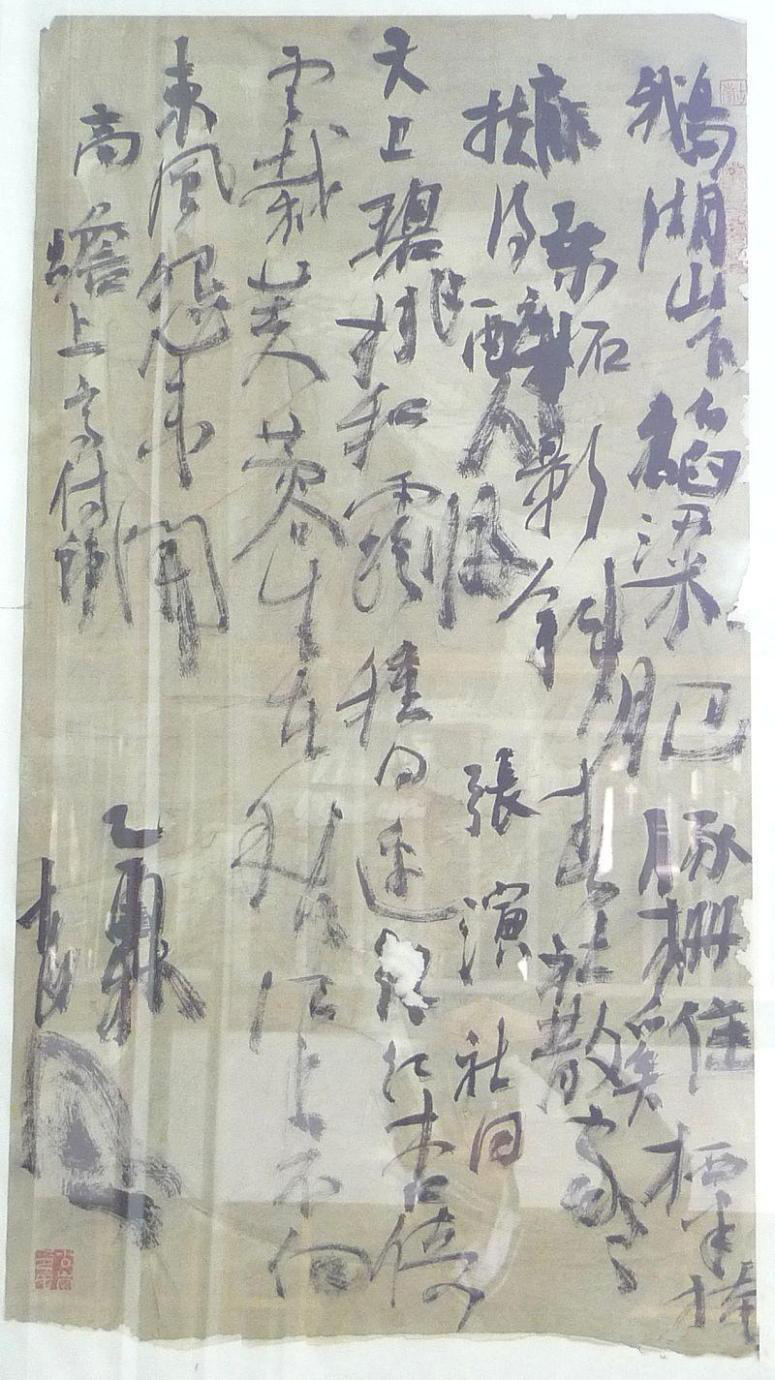 鵝湖山下稻粱肥豚柵雞栖半掩
扉桑柘影斜春社散家々
扶得醉人歸 張演 社日
天上碧桃和露種日邊紅杏倚
雲栽芙蓉生在秋江上不向
東風怨未開
高蟾上高侍郎